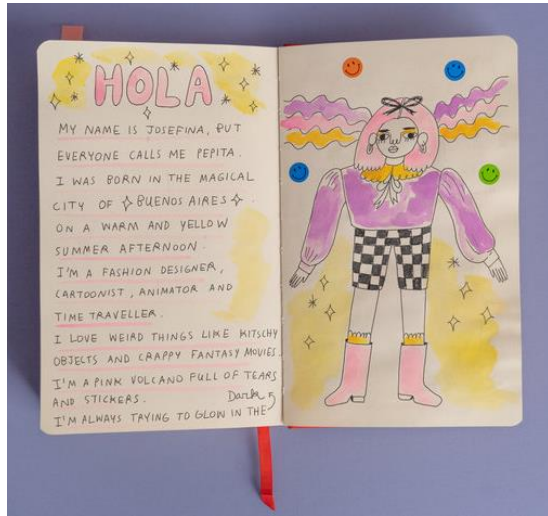 HOLA
MY NAME IS JOSEFINA, BUT
EVERYONE CALLS ME PEPITA.
I WAS BORN IN THE MAGICAL
CITY OF BUENOS AIRES.
ON A WARM AND YELLOW
SUMMER AFTERNOON.
I'M A FASHION DESIGNER,
CARTOONIST, ANIMATOR AND
TIME TRAVELLER.
I LOVE WEIRD THINGS LIKE KITSCHY
OBJECTS AND CRAPPY FANTASY MOVIES.
I'M A PINK VOLCANO FULL OF TEARS
AND STICKERS. Dark
I'M ALWAYS TAYING TO GLOW IN THE